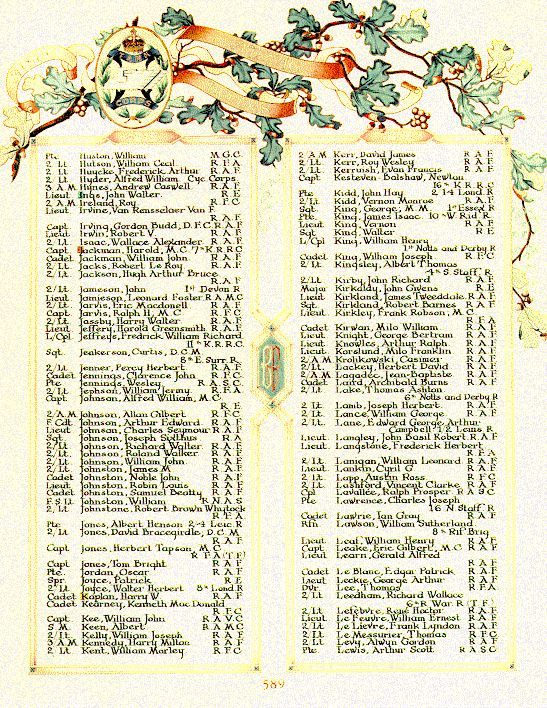 Pte Huston, William M.G.C.
2 Lt Hutson, William Cecil R.F.A
2 Lt Huycke, Frederick Arthur R A F
2 Lt Hyder, Alfred William Cyc. Corps
3 A M Hynes, Andrew Caswell R.A.F.
Lieut Ings, John Walter R E
2 A M Ireland, Roy R F C
Lieut Irvine, Van Rensselaer Van F
R A F
Capt Irving, Gordon Budd, D.F.C R A F
Lieut Irwin, Robert V. R A F
2 Lt Isaac, Wallace Alexander R A F
Capt Jackman, Harold, M.C. 7th K R R C
Cadet Jackman, William John R A F
2 Lt Jacks, Robert Le Roy R A F
2 Lt Jackson, Hugh Arthur Bruce
R.A.F
2/Lt Jameson, John 1st Devon R
Lieut Jamieson, Leonard Foster R A M C
2/Lt Jarvis, Eric Macdonell R A F
Capt Jarvis, Ralph H., M.C. R F C
2/Lt Jassby, Harry Walter R A F
Lieut Jeffery, Harold Greensmith R A F
L/Cpl Jeffreys, Fredrick William Richard
11th K.R.R.C.
Sgt. Jenkerson, Curtis, D.C.M
8th E. Surr. R
2/Lt Jenner, Percy Herbert R A F
Cadet Jennings, Clarence John R F C
Pte Jennings, Wesley R A S C
2/Lt Jephson, William Jeremy R F A
Capt Johnson, Alfred William, M.C.
R E
2/A M Johnson, Allan Gilbert R F C
F Cdt Johnson, Arthur Edward R A F
Lieut Johnson, Charles Seymour R A F
Sgt Johnson, Joseph R A
2/Lt Johnson, Richard Walter R A F
2/Lt Johnson, Roland Walker R A F
2/Lt Johnson, William John R A F
2/Lt Johnston, James M R A F
Cadet Johnston, Noble John R A F
Lieut Johnston, Robin Louis R A F
Cadet Johnston, Samuel Beatty R A F
F S Lt Johnston, William R N A S
2/Lt Johnstone, Robert Brown Whytock
R F A
Pte Jones, Albert Henson 2-4 Leic. R
2/Lt Jones, David Bracegirdle, D.C M
R A F
Capt Jones, Herbert Tapson, M.C.
R F A (T F)
Capt Jones, Tom Bright R A F
Pte Jordan, Oscar R A F
Spr. Joyce, Patrick R E
2/Lt Joyce, Walter Herbert 8th Lond R
Cadet Kaplan, Harry W R A F
Cadet Kearney, Kenneth Mac Donald
R F C
Capt Kee, William John R A V C
S M Keen, Albert R A M C
2/Lt Kelly, William Joseph R A F
3 A M Kennedy, Harry Milton R A F
2/Lt Kent, William Morley R F C
2 A M Kerr, David James R A F
2 Lt Kerr, Roy Wesley R A F
2 Lt Kerruish, Evan Francis R A F
Capt Kesteven Balshaw, Newton
16th K R R C
Pte Kidd, John Hay 2-14 Lond R
2/Lt Kidd, Vernon Monroe R A F
Sgt King, George, M.M. 1st Essex R
Pte King, James Isaac 10th W. Rid. R
Lieut King, Vernon R A F
Sgt King, Walker R E
L/Cpl King, William Henry
1st Notts and Derby R
Cadet King, William Joseph R F C
2/Lt Kingsley, Albert Thomas
4th S. Staff. R
2/Lt Kirby, John Richard R A F
Major Kirkaldy, John Owens R E
Lieut Kirkland, James Tweeddale R A F
Sgt Kirkland, Robert Barnes R A F
Lieut Kirkley, Frank Robson, M.C
R F A
Cadet Kirwan, Milo William R A F
Lieut Knight, George Bertram R A F
Lieut Knowles, Arthur Ralph R A F
Lieut Korslund, Milo Franklin R A F
2/A M Krolikowski, Casimer R A F
2/Lt Lackey, Herbert David R A F
2/A M Lagadee, Jean Baptiste R A F
Cadet Laird, Archibald Burns R A F
2/Lt Lake, Thomas Ashton
6th Notts and Derby R
2/Lt Lamb, Joseph Herbert R A F
2/Lt Lance, William George R A F
2/Lt Lane, Edward George Arthur
Campbell 4-2 Lond. R
Lieut Langley, John Basil Robert R A F
Lieut Langstone, Frederick Herbert
R F A
2/Lt Lanigan, William Leonard R A F
Lieut Lankin, Cyril G R A F
2/Lt Lapp, Austin Ross R F C
2/Lt Lashford, Vincent Clarke R A F
Cpl Lavallée, Ralph Prosper R A S C
Pte Lawrence, Charles Joseph
16 N. Staff R
Cadet Lawrie, Ian Gray R A F
Rfn Lawson, William Sutherland
8th Rif Brig
Lieut Leaf, William Henry R A F
Capt Leake, Eric Gilbert, M C R A F
Lieut Learn, Gerald Alfred
R A F
Cadet Le Blanc, Edgar Patrick R A F
Lieut Leckie, George Arthur R A F
Dvr Lee, Thomas R F A
2 Lt Leedham, Richard Wallace
6th R War R (T F)
2 Lt Lefebvre, René Hoctor R A F
Lieut Le Feuvre, William Ernest R A F
2 Lt Le Lievre, Frank Lyndon R A F
2 Lt Le Messurier, Thomas R F C
2 Lt Levy, Alwyn Gordon R A F
Pte Lewis, Arthur Scott R A S C
589